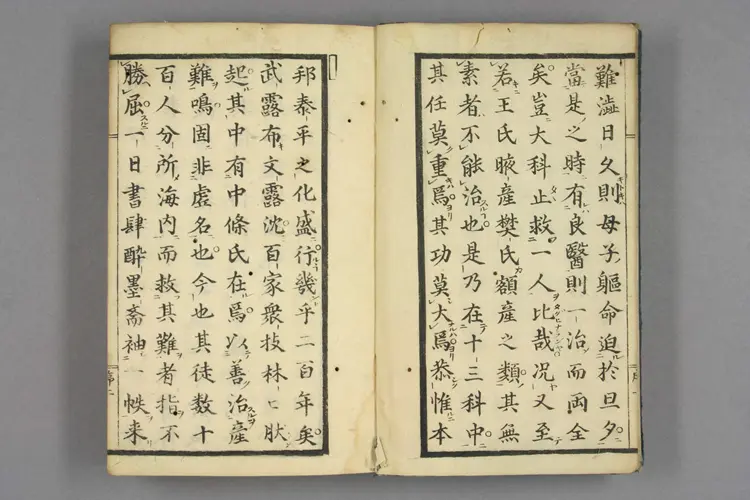 難澁日久則母子軀命迫於旦夕
當是之時有良醫則一治而両全
矣豈大科止救一人比哉况又至
若王氏腋産樊氏額産之類其無
素者不能治也是乃在十三科中
其任莫重焉其功莫大焉恭惟本
邦泰平之化盛行幾乎二百年矣
武露布文露沈百家衆技林〻肰
起其中有中條氏在焉以善治産
難鳴固非虚名也今也其徒数十
百人分所海内而救其難者指不
勝屈一日書肆酔墨斎袖一帙来